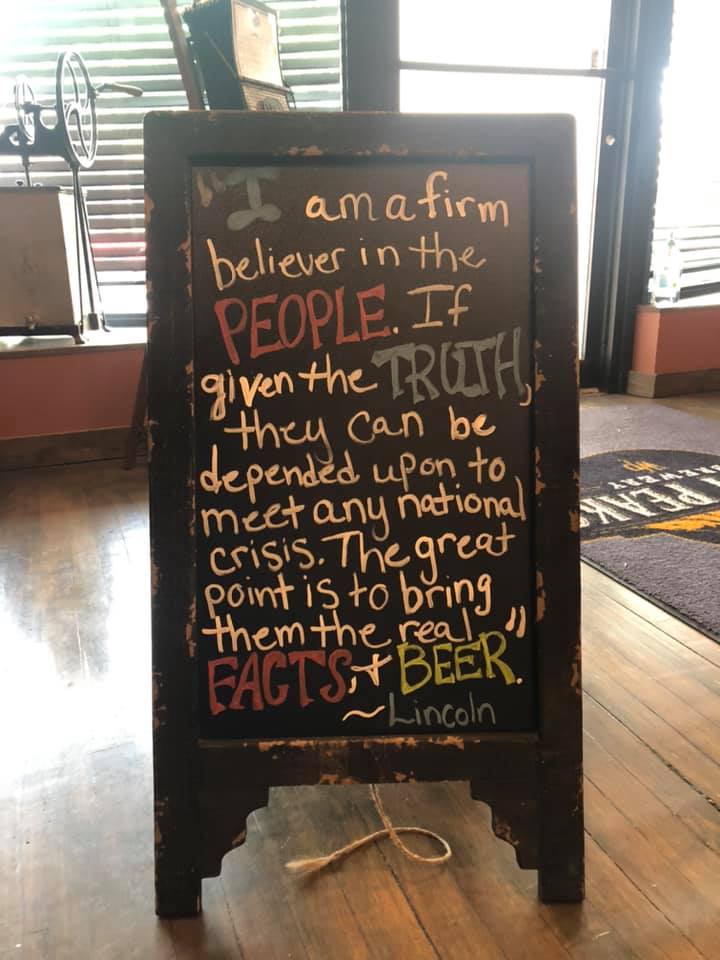 "I am a firm
believer in the
PEOPLE. If
given the TRUTH,
they can be
depended upon to
meet any national
crisis. The great
point is to bring
them the real
FACTS, + BEER."
~Lincoln
PEAKS
BREWERY